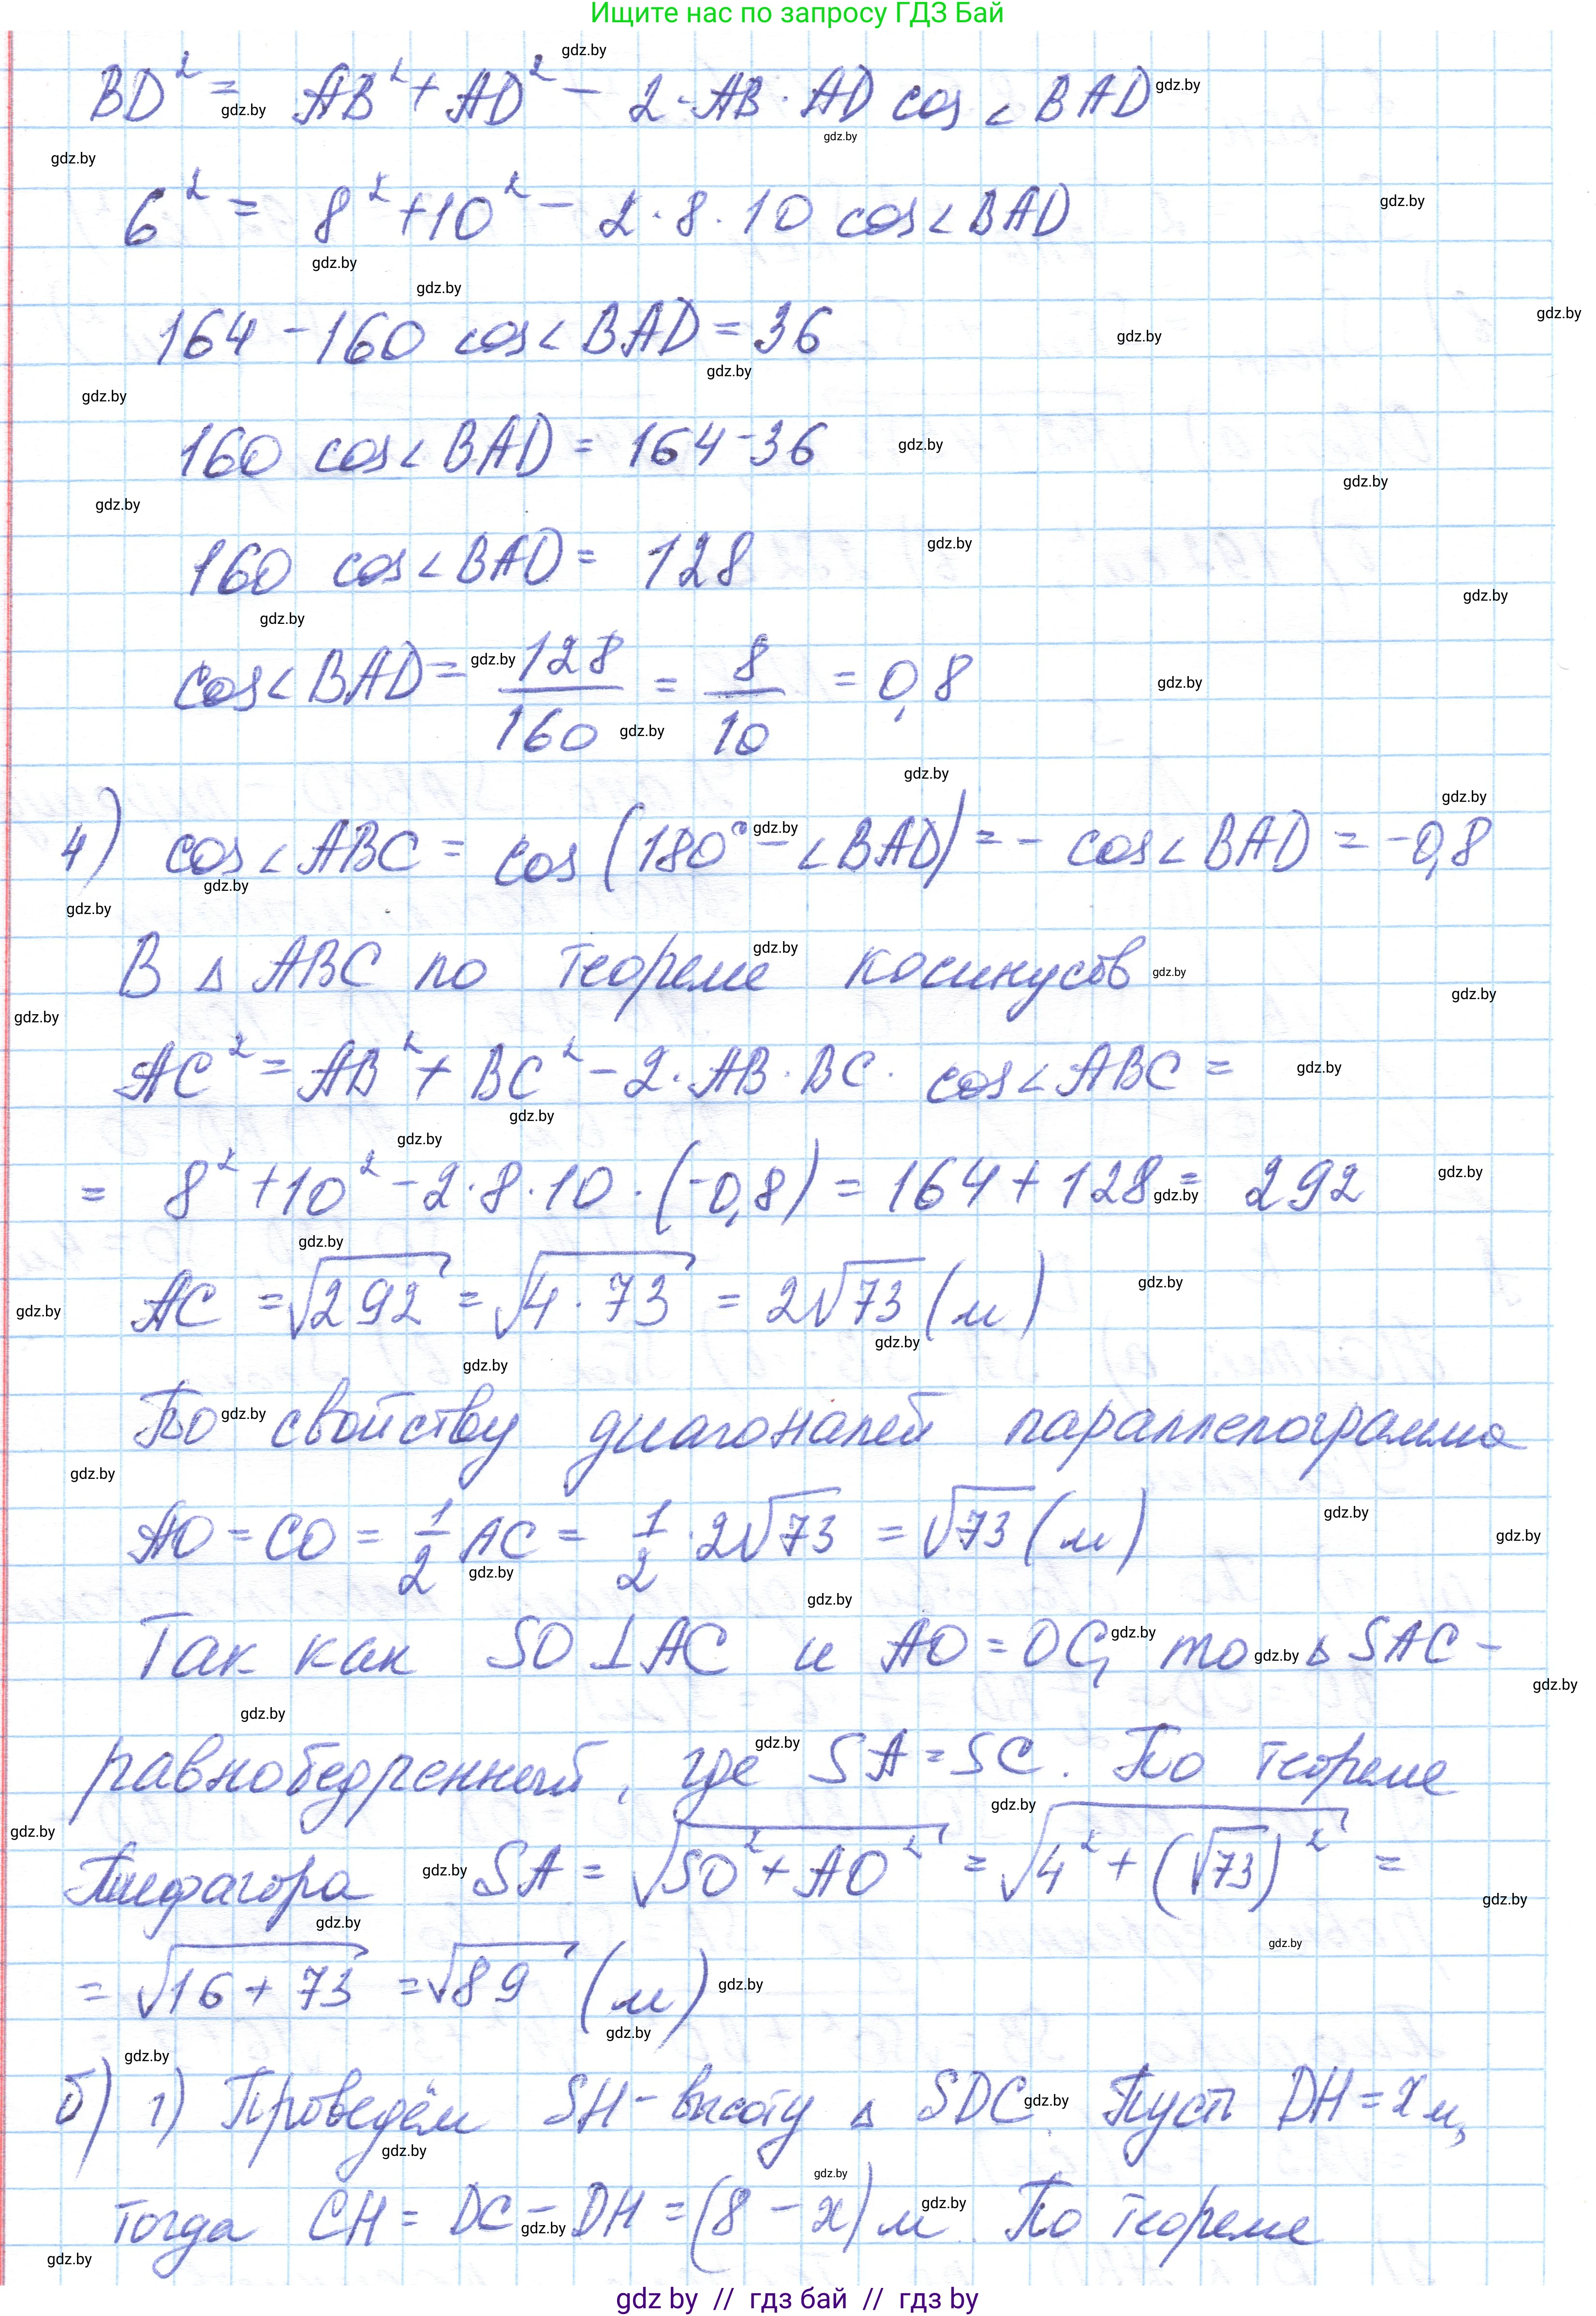 Ищите нас по запросу ГДЗ Бай
BD² = AB² + AD² - 2·AB·AD cos∠BAD
6² = 8² + 10² - 2·8·10 cos∠BAD
164 - 160 cos∠BAD = 36
160 cos∠BAD = 164 - 36
160 cos∠BAD = 128
cos∠BAD = 128/160 = 8/10 = 0,8
4) cos∠ABC = cos(180° - ∠BAD) = - cos∠BAD = -0,8
В △ABC по теореме косинусов
AC² = AB² + BC² - 2·AB·BC·cos∠ABC =
= 8² + 10² - 2·8·10·(-0,8) = 164 + 128 = 292
AC = √292 = √4·73 = 2√73 (м)
По свойству диагоналей параллелограмма
AO = CO = 1/2 AC = 1/2·2√73 = √73 (м)
Так как SO⊥AC и AO = OC, то △SAC -
равнобедренный, где SA = SC. По теореме
Пифагора SA = √SO² + AO² = √4² + (√73)² =
= √16 + 73 = √89 (м)
б) 1) Проведём SH - высоту △ SDC. Пусть DH = x м,
тогда CH = DC - DH = (8 - x) м. По теореме
gdz by // гдз бай // гдз by